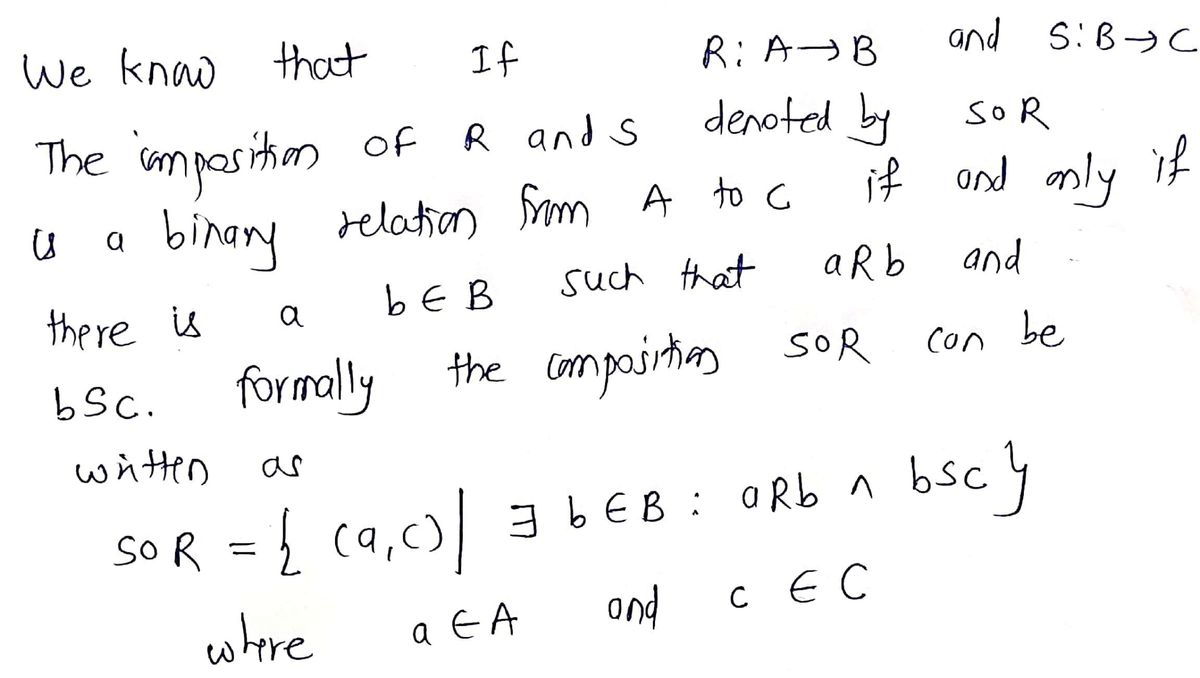 We know that If R: A→B and S: B→C
The composition of R and S denoted by SoR
is a binary relation from A to C if and only if
there is a b ∈ B such that aRb and
bSc. formally the composition SoR can be
written as
SoR = { (a,c) | ∃ b ∈ B : aRb ∧ bSc }
where a ∈ A and c ∈ C